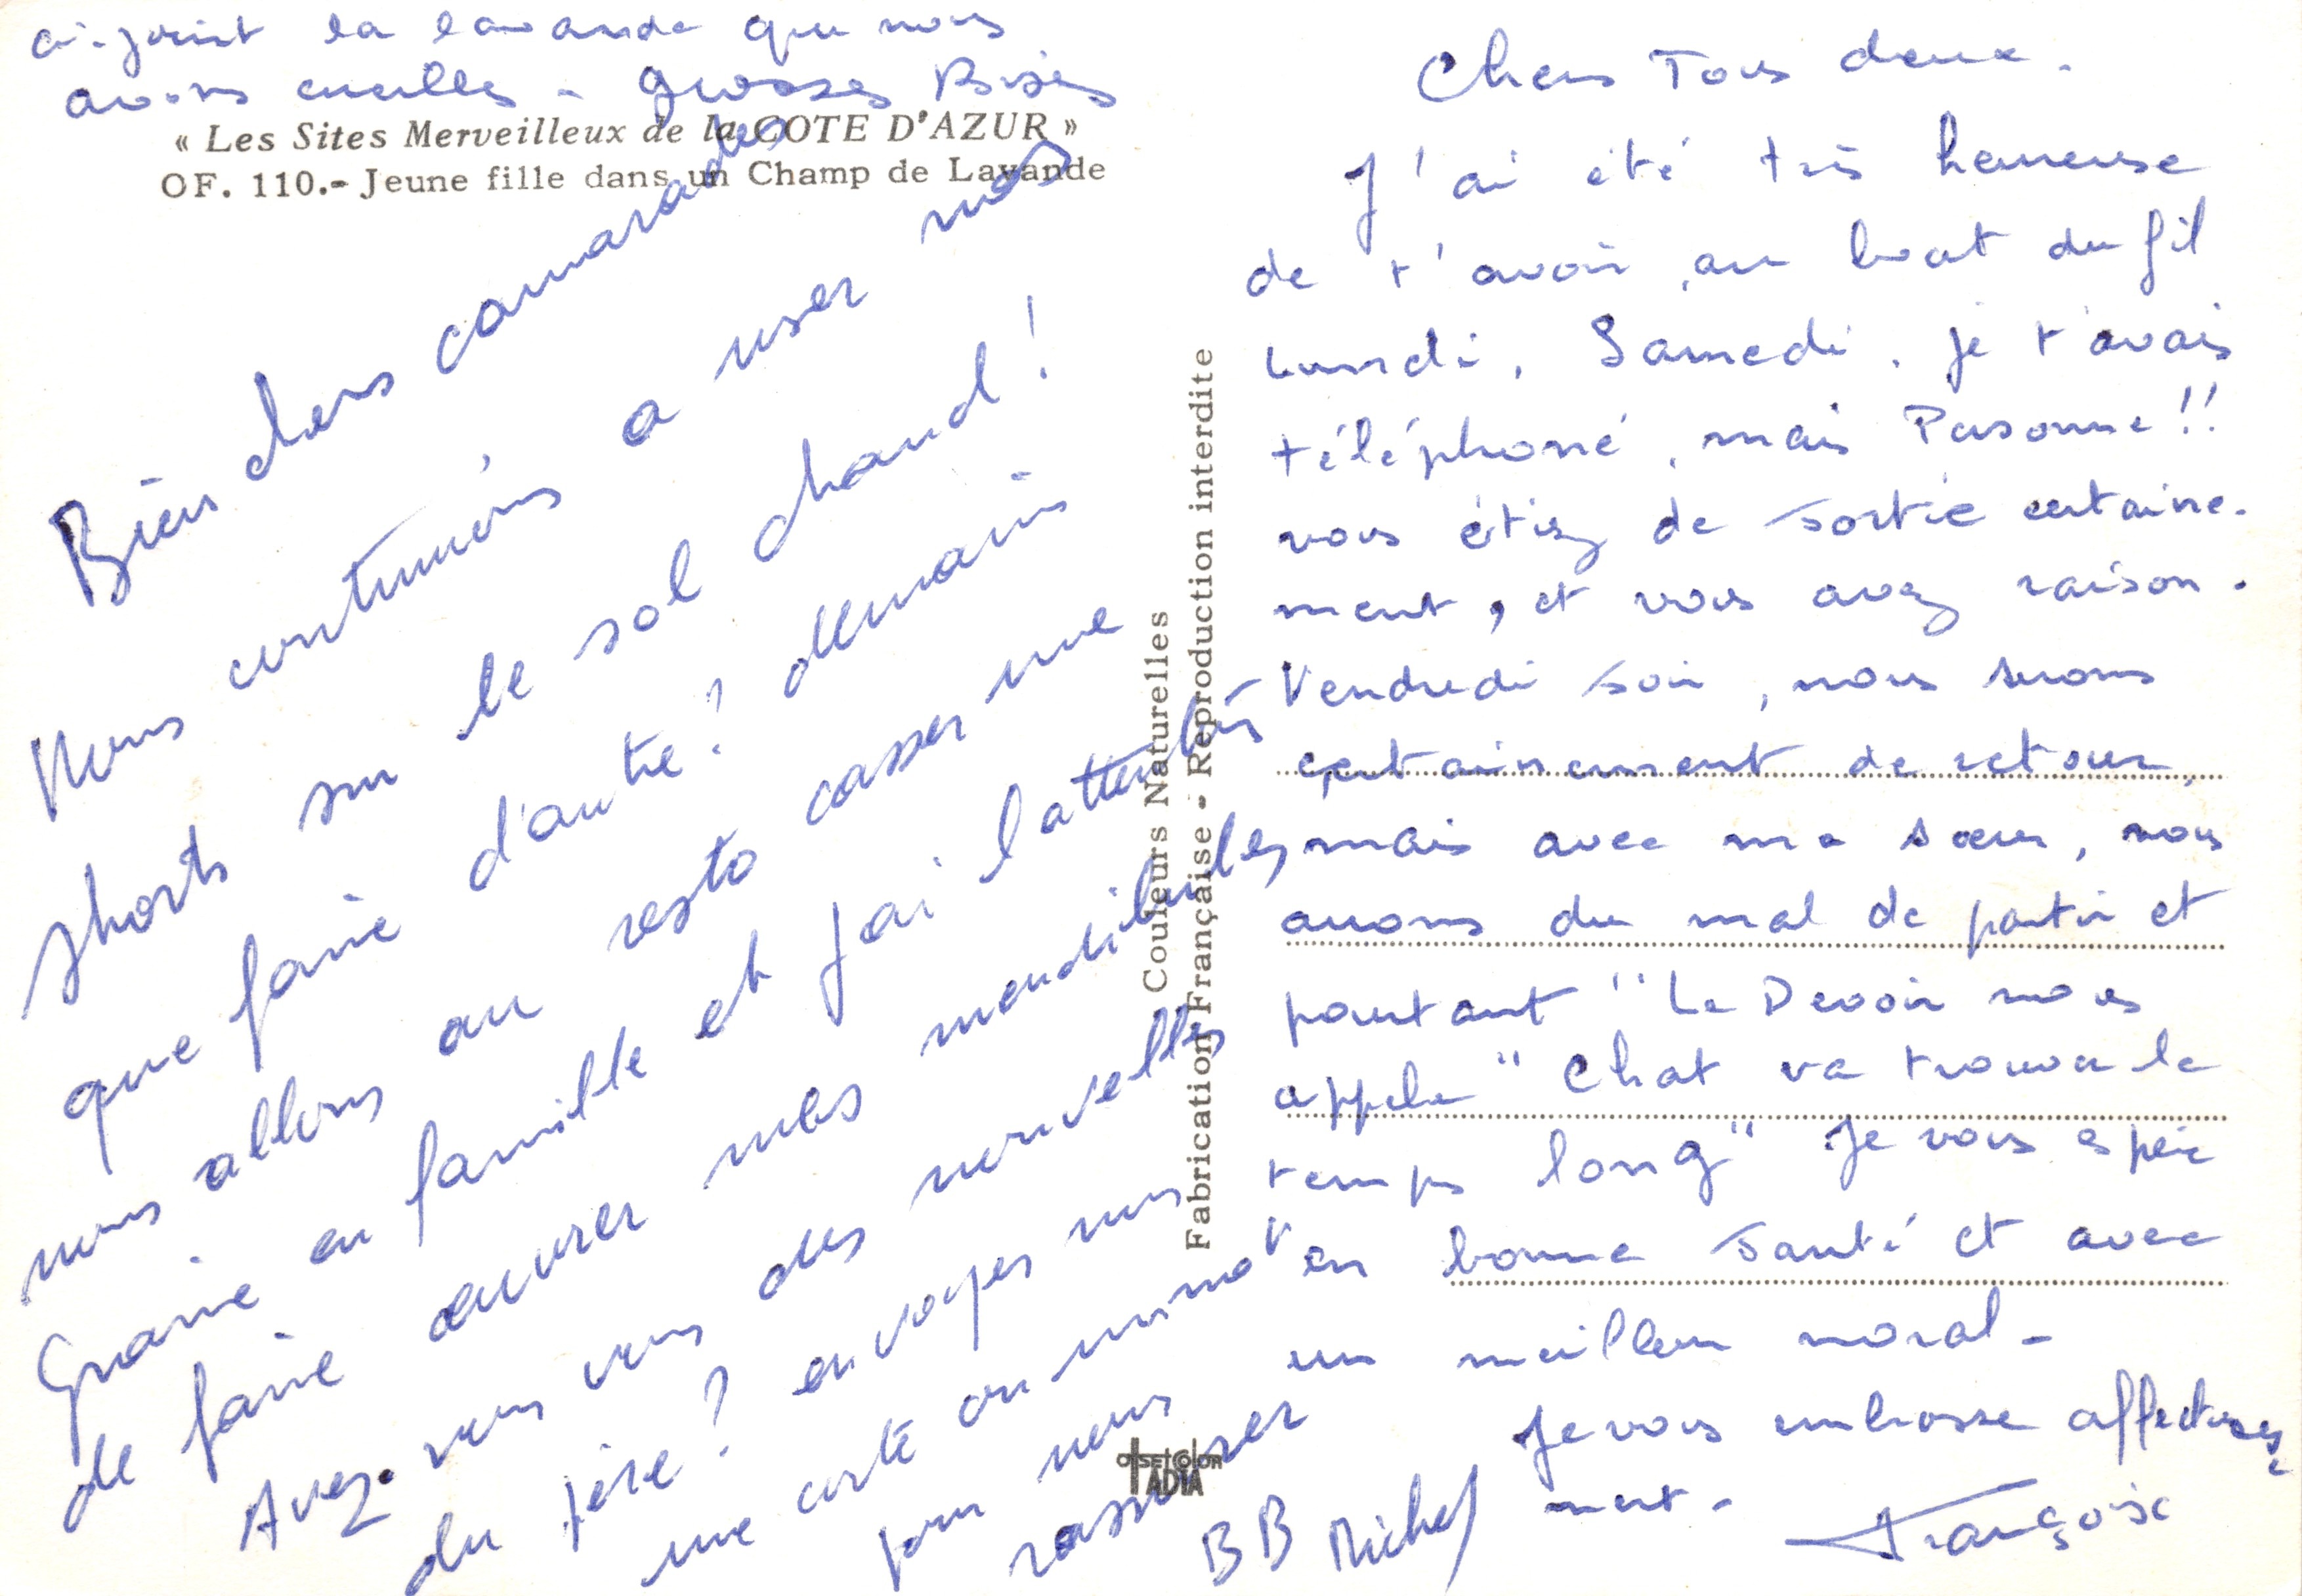 ci-joint la lavande que nous
avons cueillie - grosses Bises
« Les Sites Merveilleux de la COTE D'AZUR »
OF. 110.- Jeune fille dans un Champ de Lavande
Bien chers camarades
Nous continuons, a user nos
shorts sur le sol chaud !
que faire d'autre? demain
nous allons au resto casser une
graine en famille et j'ai l'attention
de faire œuvrer mes mandibules
Avez-vous vous des nouvelles
du père? envoyer nous
une carte ou un mot
pour nous
rassurer
BB Michel
Couleurs Naturelles
Fabrication Française - Reproduction interdite
OFFSETCOLOR
TADIA
Chers Tous deux.
J'ai été très heureuse
de t'avoir au bout du fil
Lundi, Samedi, je t'avais
téléphoné, mais Personne!!
vous étiez de sortie certaine-
ment, et vous avez raison.
Vendredi soir, nous serons
certainement de retour,
mais avec ma sœur, nous
aurons du mal de partir et
pourtant "Le Devoir nous
appelle" Chat va trouver le
temps long" Je vous espère
en bonne santé et avec
un meilleur moral -
Je vous embrasse affectueuse
ment -
Françoise